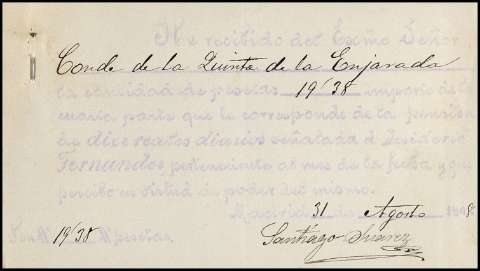 He recibido del Exmo Señor
Conde de la Quinta de la Enjarada
la cantidad de pesetas 19'38 importe de la
cuarta parte que le corresponde de la pension
de diez reales diarios señalada á
Fernandez perteneciente al mes de la fecha y que
percibo en virtud de poder del mismo.
Madrid 31 de Agosto
Son 19'38 pesetas.
Santiago Suarez